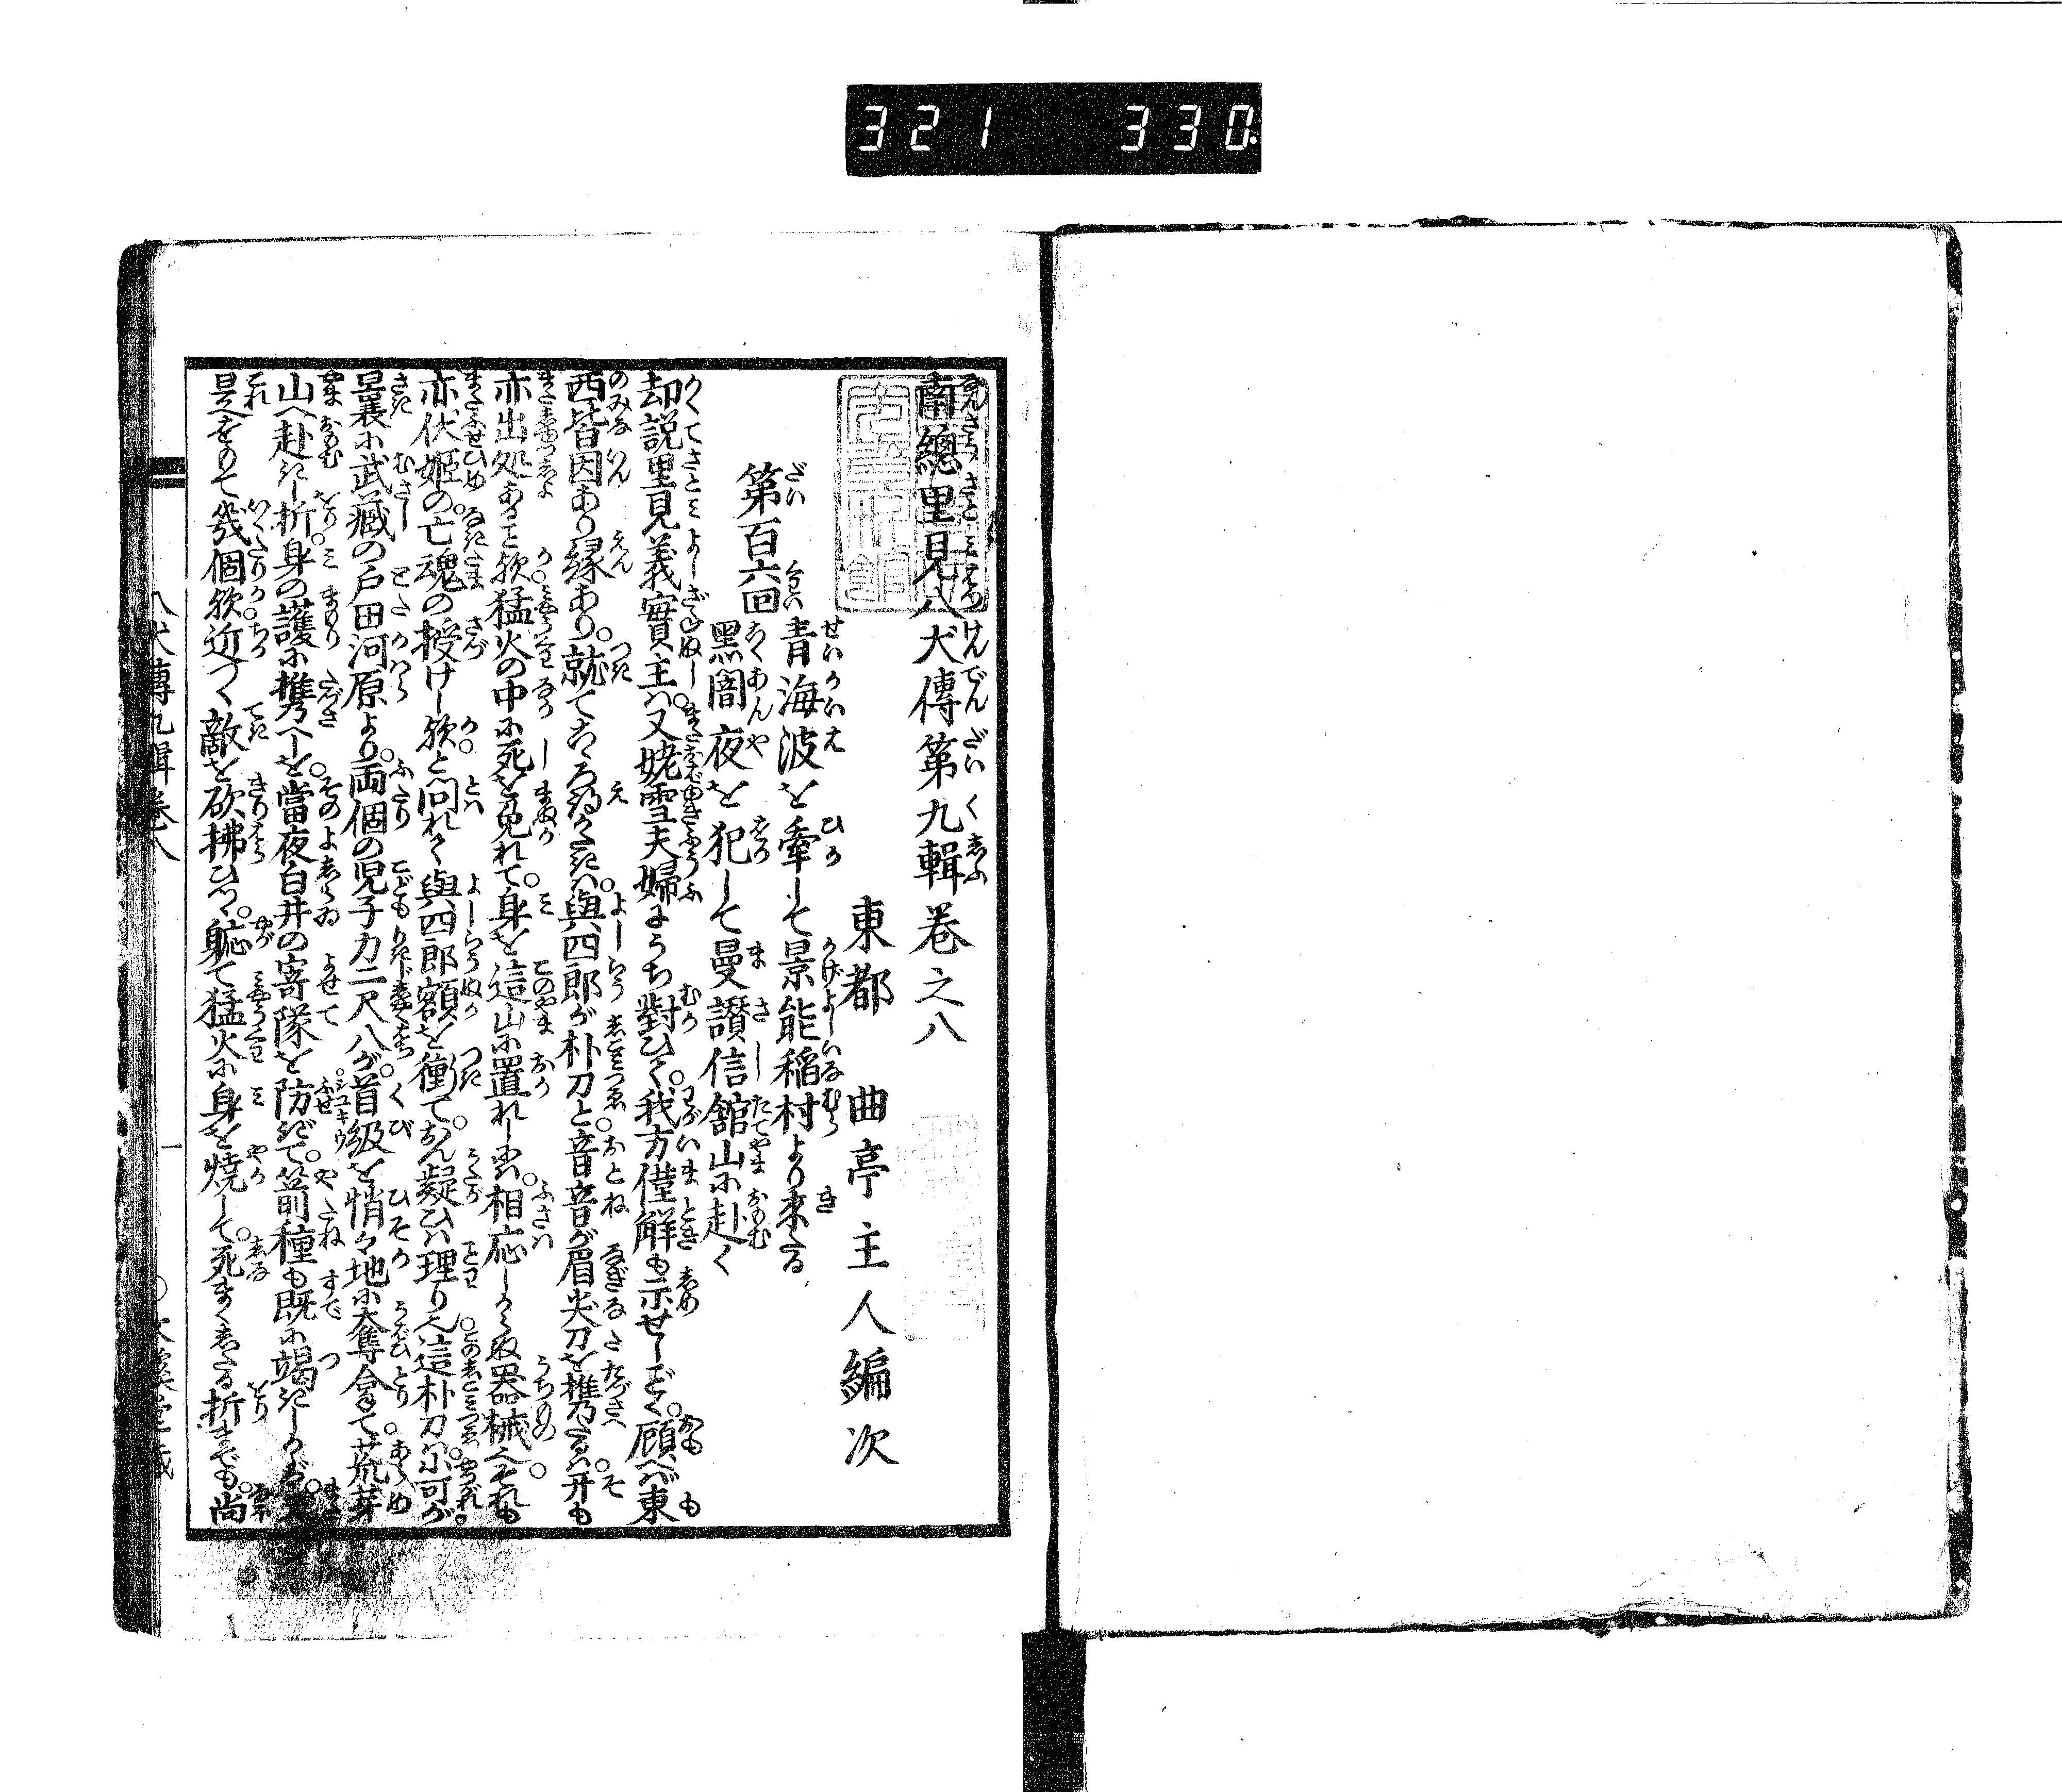 321 330
南總里見八犬傳第九輯巻之八
東都 曲亭主人編次
第百六回
青海波を牽して景能稲村より来る
黒闇夜を犯して曼讃信舘山に赴く
却説里見義實主ハ又姥雪夫婦にうち對ひて我方僅解も示せしごとく顧へバ東
西皆因あり縁あり就てこゝろ得がたきハ與四郎が朴刀と音音が眉尖刀を携たるハ开も
亦出処あること欤猛火の中に死を免れて身を這山に置れしにハ相応しからぬ器械へそれも
亦伏姫の亡魂の授けし欤と問れて與四郎額を衝ておん疑ひハ理り也這朴刀ハ尓可が
曩裏に武藏の戸田河原より両個の児子力二尺八が首級を悄々地に奪拿て荒芽
山へ赴きし折身の護に携へしを當夜白井の寄隊を防ぎて箭種も既に竭きしかば
是をのて幾個欤近づく敵を砍拂ひつゝ軈て猛火に身を焼して死まくしたる折までも尚
八犬傳九輯巻八
一